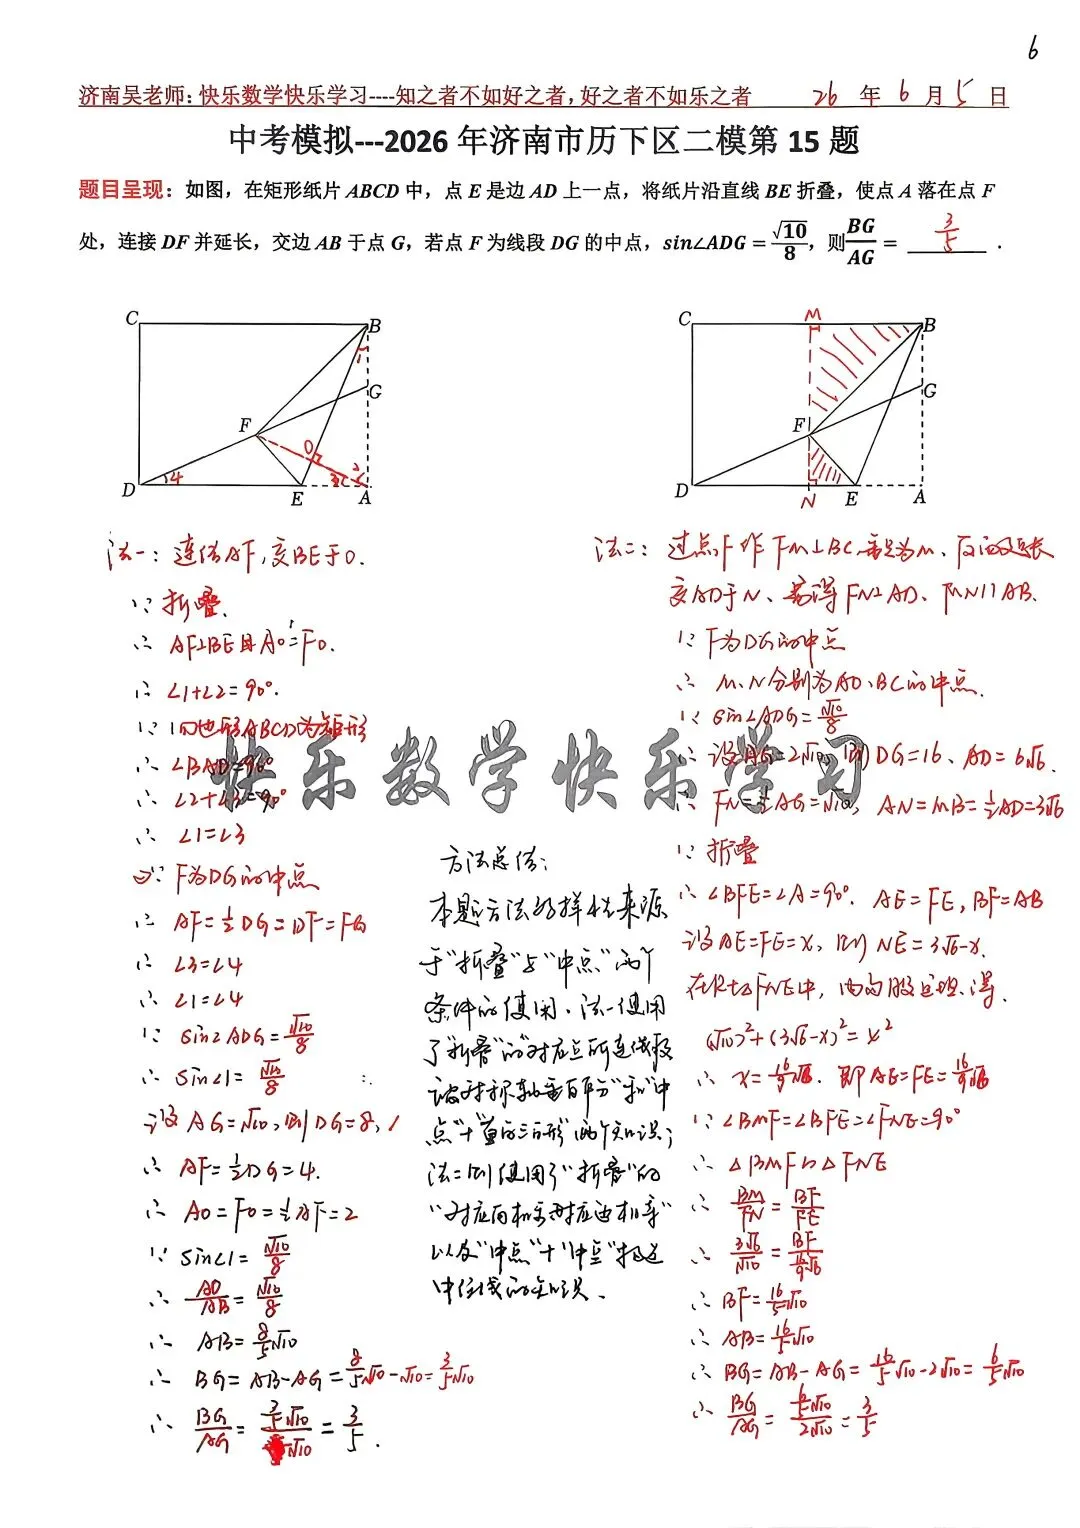 6
济南吴老师：快乐数学快乐学习----知之者不如好之者，好之者不如乐之者 26 年 6 月 5 日
中考模拟---2026 年济南市历下区二模第 15 题
题目呈现：如图，在矩形纸片 ABCD 中，点 E 是边 AD 上一点，将纸片沿直线 BE 折叠，使点 A 落在点 F
处，连接 DF 并延长，交边 AB 于点 G，若点 F 为线段 DG 的中点，sin∠ADG = √10/8，则 BG/AG = 3/5 .
C B G F D E A O 1 2 3 4
C M B G F D N E A
法一：连结AF，交BE于O.
∵折叠.
∴ AF⊥BE且AO=FO.
∴ ∠1+∠2=90°.
∵四边形ABCD为矩形
∴ ∠BAD=90°
∴ ∠2+∠3=90°
∴ ∠1=∠3
∵ F为DG的中点
∴ AF=½DG=DF=FG
∴ ∠3=∠4
∴ ∠1=∠4
∵ sin∠ADG=√10/8
∴ sin∠1=√10/8
设AG=√10，则DG=8,
∴ AF=½DG=4.
∴ AO=FO=½AF=2
∵ sin∠1=√10/8
∴ AO/AB=√10/8
∴ AB=8/5√10
∴ BG=AB-AG=8/5√10-√10=3/5√10
∴ BG/AG= 3/5√10 / √10 = 3/5.
方法总结：
本题方法的多样性来源
于"折叠"与"中点"两个
条件的使用．法一使用
了"折叠"的"对应点所连线段
被对称轴垂直平分"和"中
点"+"直角三角形"两个知识；
法二则使用了"折叠"的
"对应角相等对应边相等"
以及"中点"+"中点"构造
中位线的知识．
法二：过点F作FM⊥BC，垂足为M、反向延长
交AD于N、易得FN⊥AD、MN∥AB.
∵ F为DG的中点
∴ M、N分别为AD、BC的中点.
∵ sin∠ADG=√10/8
∴ 设AG=2√10，则DG=16、AD=6√6.
∴ FN=½AG=√10，AN=MB=½AD=3√6
∵折叠
∴ ∠BFE=∠A=90°. AE=FE，BF=AB
设AE=FE=x，则NE=3√6-x.
在Rt△FNE中，由勾股定理得.
(√10)²+(3√6-x)²=x²
∴ x=16/9√6. 即AE=FE=16/9√6
∵ ∠BMF=∠BFE=∠FNE=90°
∴ △BMF∽△FNE
∴ BM/FN=BF/FE
∴ 3√6/√10 = BF / 16/9√6
∴ BF=16/5√10
∴ AB=16/5√10
∴ BG=AB-AG=16/5√10-2√10=6/5√10
∴ BG/AG= 6/5√10 / 2√10 = 3/5
快乐数学快乐学习